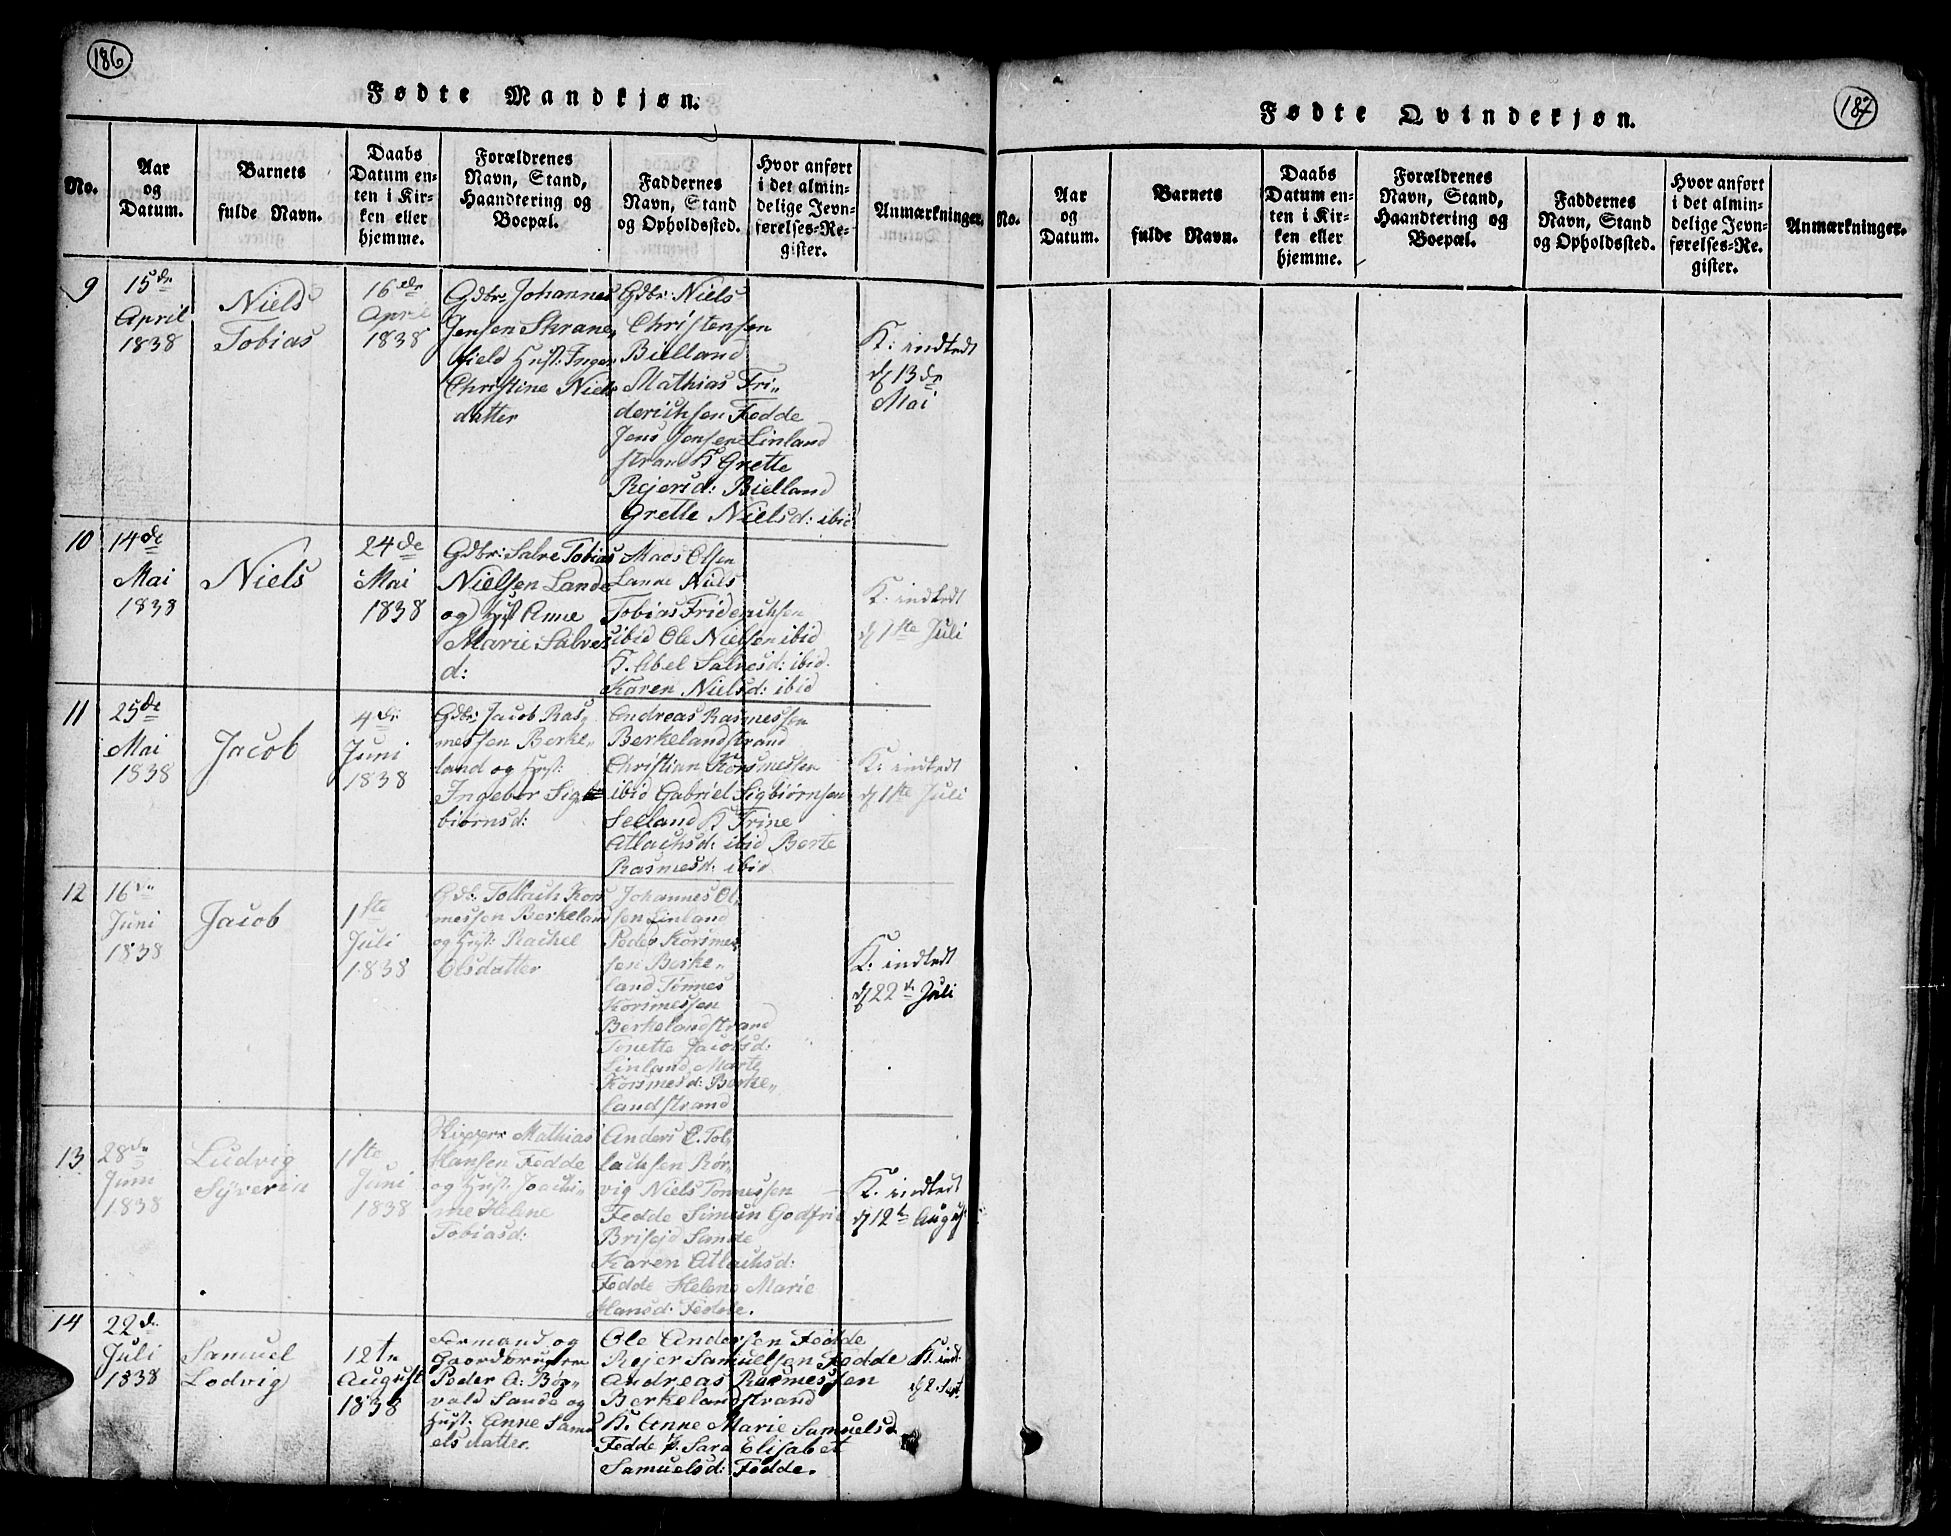 186
Fødte Mandkjøn.
No.
Aar
og
Datum.
Barnets
fulde Navn.
Daabs
Datum en-
ten i Kir-
ken eller
hjemme.
Forældrenes
Navn, Stand,
Haandtering og
Boepæl.
Faddernes
Navn, Stand
og Opholdssted.
Hvor anført
i det almin-
delige Jevn-
førelses-Re-
gister.
Anmærkninger.
9
15de
April
1838
Niels
Tobias
16de
April
1838
Gdbr: Johannes
Jensen Skrane„
field Hust: Inger
Christine Niels
datter
Gdbr: Niels
Christensen
Bielland
Mathias Fri„
derichsen Fedde
Jens Jensen Linland
strand K Grette
Rejersd: Bielland
Grette Nielsd: ibid
K: indledt
d 13de
Mai
10
14de
Mai
1838
Niels
24de
Mai
1838
Gdbr: Salve Tobias
Nielsen Lande
og Hust Anne
Marie Salves
d:
Mads Olsen
Lanne Niels
Tobias Friderichsen
ibid Ole Nielsen ibid
K. Abel Salvesd: ibid.
Karen Nielsd: ibid
K: indledt
d 1ste Juli
11
25de
Mai
1838
Jacob
4de
Juni
1838
Gdbr: Jacob Ras„
messen Berke„
land og Hust:
Ingebor Sig
biørnsd:
Andreas Rasmessen
Berkelandstrand
Christian Korsmessen
ibid Gabriel Sigbiørnsen
Selland K Trine
Atlachsd: ibid Berte
Rasmesd: ibid
K: indledt
d 1ste Juli
12
16de
Juni
1838
Jacob
1ste
Juli
1838
Gdb: Tollach Kors
messen Berkeland
og Hust: Rachel
Olsdatter
Johannes Ol„
sen Linland
Peder Korsmes„
sen Berke„
land Tønnes
Korsmessen
Berkelandstrand
Tonette Jacobsd:
Linland Marte
Korsmesd: Berke„
landstrand
K: indledt
d 22de Juli
13
28de
Juni
1838
Ludvig
Syverin
1ste
Juni
1838
Skipper Mathias
Hansen Fedde
og Hust: Joachi„
me Helene
Tobiasd:
Anders C. Tol„
lachsen Rør„
vig Niels Tønnessen
Fedde Simon Godfrie
Brisejd Sande
Karen Atlachsd:
Fedde Helene Marie
Hansd: Fedde.
K: indledt
d 12te August
14
22de
Juli
1838
Samuel
Lodvig
12te
August
1838
Formand og
Gaardbruger
Peder A: Bør„
vald Sande og
Hust: Anne Samu
elsdatter.
Ole Andersen Fedde
Rejer Samuelsen Fedde
Andreas Rasmessen
Berkelandstrand
K. Anne Marie Samuelsd.
Fedde p. Sara Elisabet
Samuelsd: Fedde.
K: indl.
d 2 Sept.
187
Fødte Qvindekjøn.
No.
Aar
og
Datum.
Barnets
fulde Navn.
Daabs
Datum en-
ten i Kir-
ken eller
hjemme.
Forældrenes
Navn, Stand,
Haandtering og
Boepæl.
Faddernes
Navn, Stand
og Opholdssted.
Hvor anført
i det almin-
delige Jevn-
førelses-Re-
gister.
Anmærkninger.